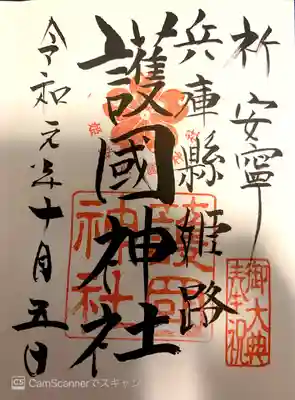 祈 安寧
兵庫縣姫路
護國神社
令和元年十月五日
護國
神社
御大典
奉祝
CS CamScannerでスキャン